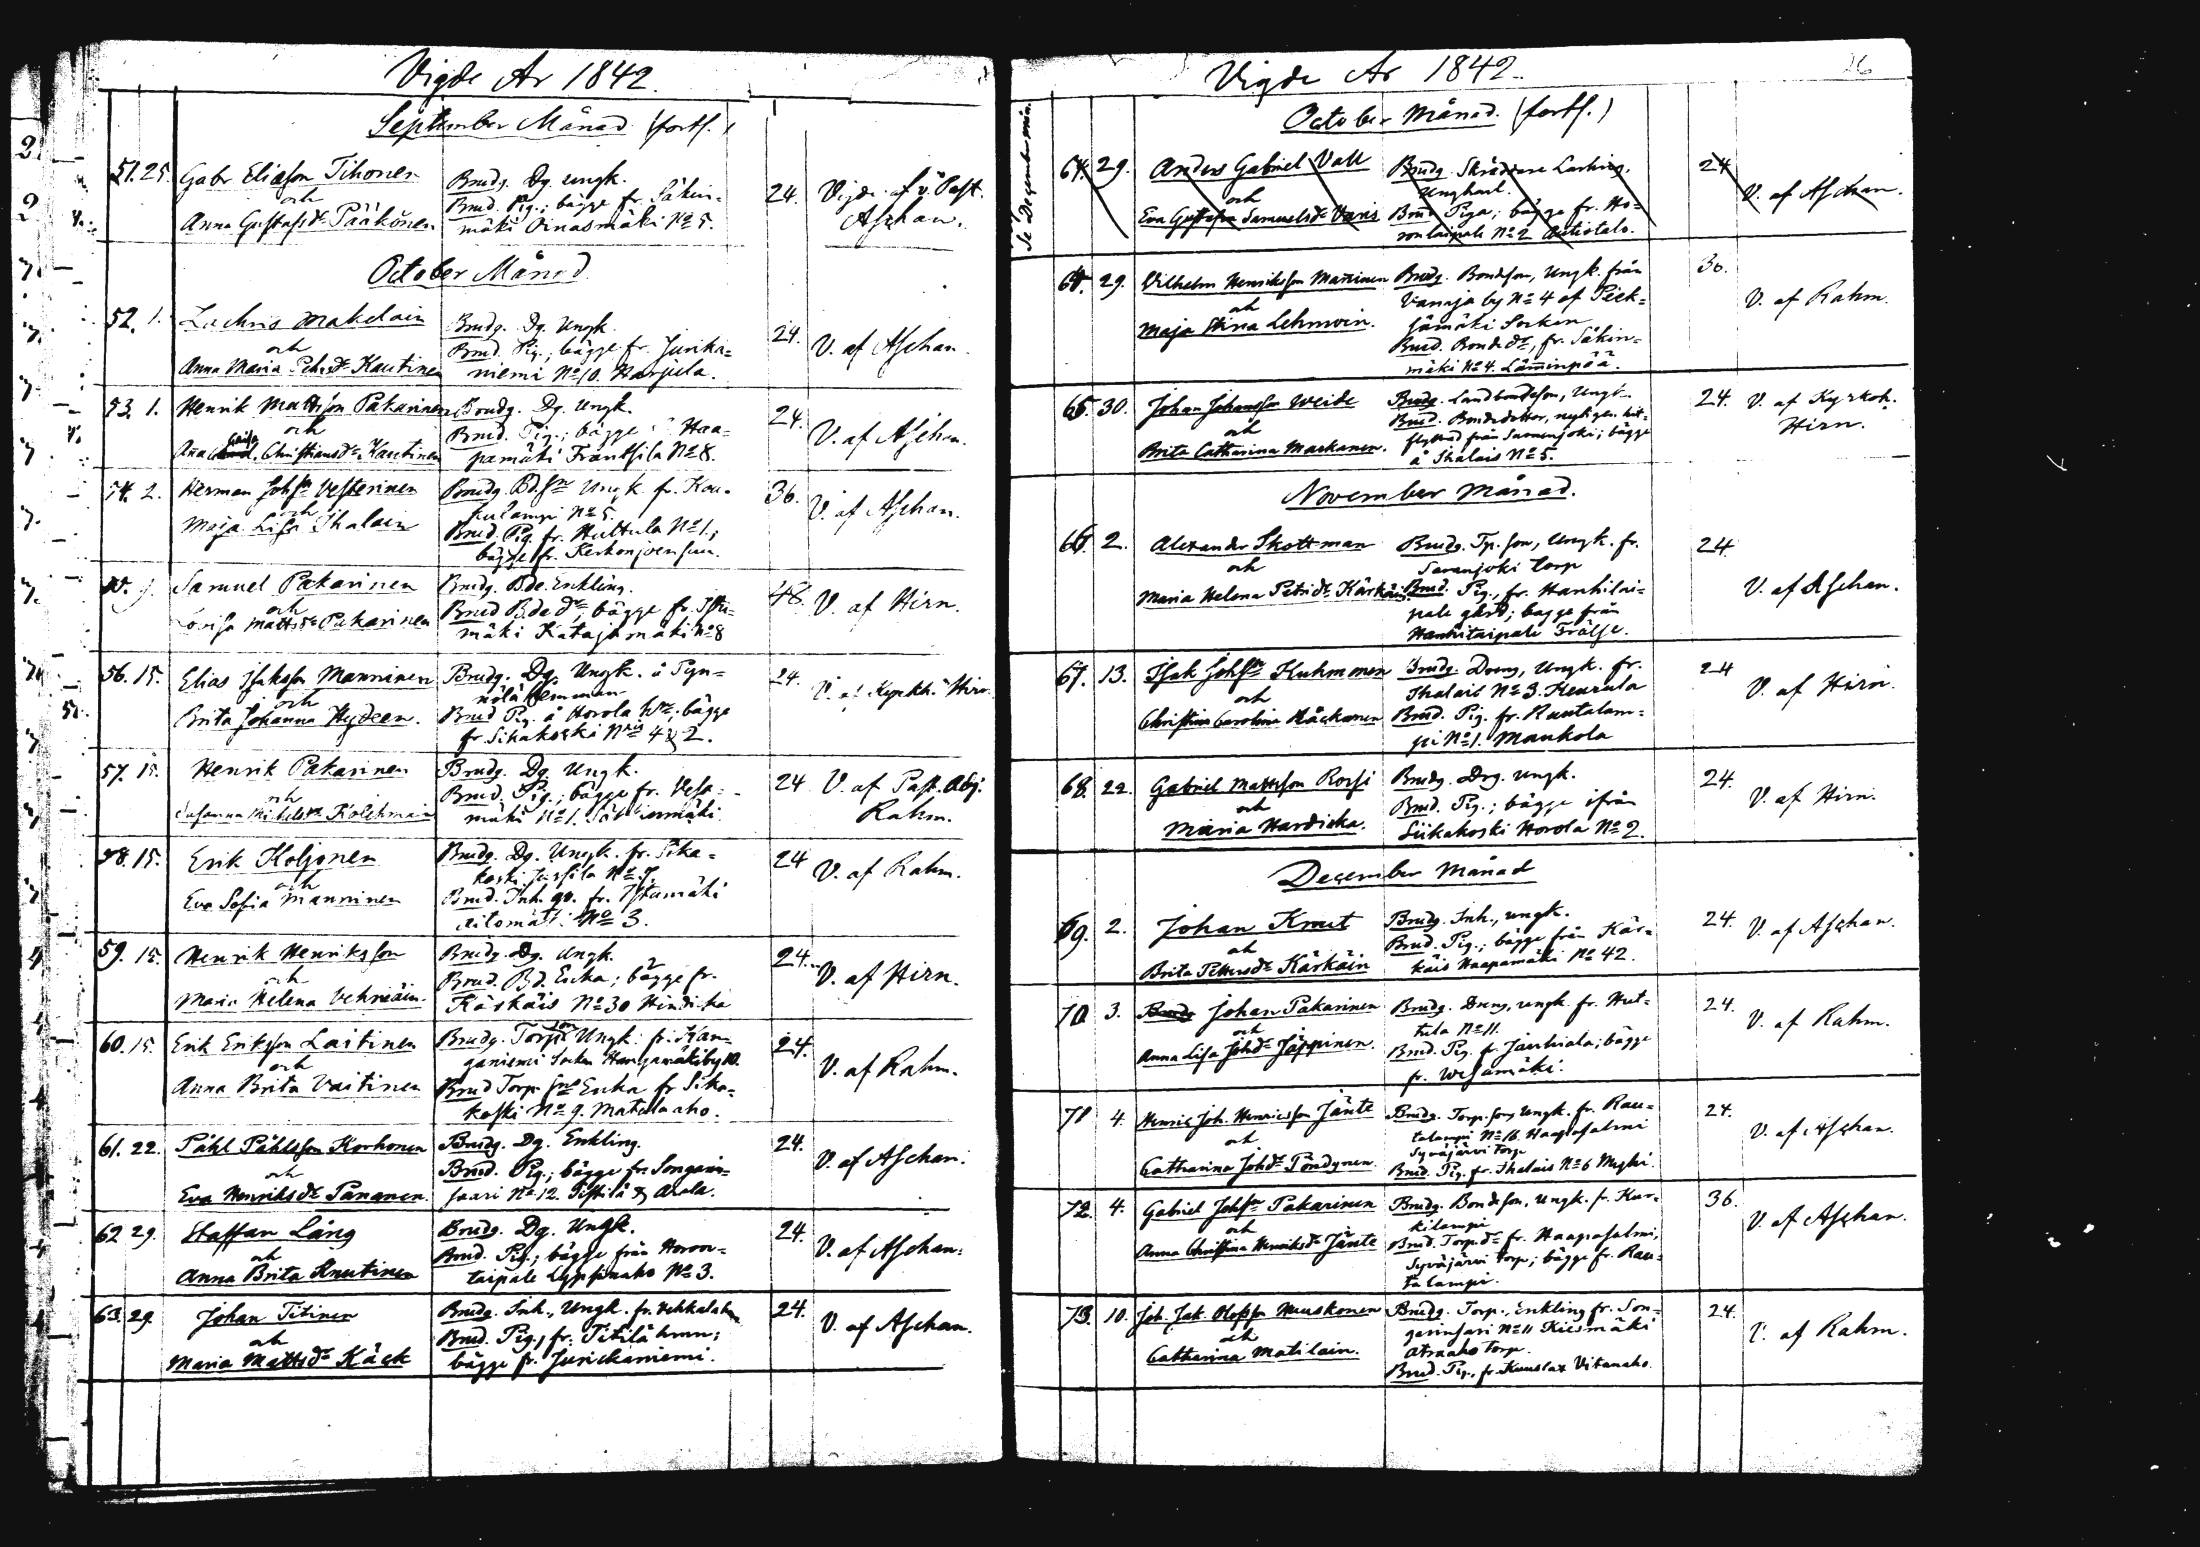 Vigde År 1842.
September Månad (forts.)
51. 25. Gabr Eliasson Tihonen
och
Anna Gustafsdr Pääkönen
Brudg. Dg. ungk.
Brud. Pig.; bägge fr. Säkin=
mäki Oinasmäki No 5.
24. Vigde af v. Past.
Aschan.
October Månad
52. 1. Zachris Makelain
och
Anna Maria Kautinen
Brudg. Dg. Ungk.
Brud. Pig.; bägge fr. Jurika=
niemi No 10. Harjula.
24. V. af Aschan.
53. 1. Henrik Mattsson Pakarinen
och
Anna Caisa Christiansdr Kautinen
Brudg. Dg. Ungk.
Brud. Pig.; bägge Haa=
pamäki Frantsila No 8.
24. V. af Aschan.
54. 2. Herman Johsn Vesterinen
och
Maja Lisa Ihalain
Brudg. Bd.sn Ungk. fr. Kou=
hulampi No 5.
Brud. Pig. fr. Huttula No 1.;
bägge fr. Kerkonjoensuu.
36. V. af Aschan.
55. 9. Samuel Pakarinen
och
Lovisa Mattsdr Pakarinen
Brudg. Bde. Enkling.
Brud Bdedr, bägge fr. Istu=
mäki Katajamäki No 8
48. V. af Hirn.
56. 15. Elias Isaksson Manninen
och
Brita Johanna Hydeen.
Brudg. Dg. Ungk. å Pyn=
nölä Hemman
Brud Pig. å Horola hn, bägge
fr. Siikakoski Nris 4 & 2.
24. V. af Kyrkh. Hirn.
57. 15. Henrik Pakarinen
och
Susanna Mickelsdr Kolehmain
Brudg. Dg. Ungk.
Brud. Pig.; bägge fr. Vesa=
mäki No 1.
24 V. af Past. Adj.
Rahm.
58. 15. Erik Koljonen
och
Eva Sofia Manninen
Brudg. Dg. Ungk. fr. Sika=
koski
Brud. Inh. fr. Istumäki
Aitomäki No 3.
24 V. af Rahm.
59. 15. Henrik Henriksson
och
Maria Helena Vehniäin.
Brudg. Dg. Ungk.
Brud. Bd. Enka; bägge fr.
Kärkäis No 30 Hindikka
24. V. af Hirn.
60. 15. Erik Eriksson Laitinen
och
Anna Brita Vaitinen
Brudg. Torpson Ungk. fr. Kan=
ganiemi Socken Hangasmäki by 10.
Brud Torp. Enka fr. Sika=
koski No 9. Matalaaho.
24. V. af Rahm.
61. 22. Påhl Påhlsson Korhonen
och
Eva Henriksdr Pananen.
Brudg. Dg. Enkling.
Brud. Pig.; bägge fr. Songain=
saari No 12. Tiittilä & Arola.
24. V. af Aschan.
62 29. Staffan Lång
och
Anna Brita Knutinen
Brudg. Dg. Ungk.
Brud. Pig.; bägge från Horon=
taipale Lyyssinaho No 3.
24. V. af Aschan.
63. 29. Johan Titinen
och
Maria Mattsdr Käck
Brudg. Inh., Ungk. fr. Vehkalahn
Brud. Pig., fr. Titilä hman;
bägge fr. Jurickaniemi.
24. V. af Aschan.
Vigde År 1842.
26
October Månad. (forts.)
Se December mån.
64. 29. Anders Gabriel Vall
och
Eva Gustafva Samuelsdr Varis
Brudg. Skräddare Lärling,
Ungkarl.
Brud Piga; bägge fr. Ho=
rontaipale No 2 Autiotalo.
24 V. af Aschan.
64. 29. Vilhelm Henriksson Manninen
och
Maja Stina Lehmoin.
Brudg. Bondeson, Ungk. från
Vanaja by No 4 af Pieck=
sämäki Socken
Brud. Bondedr, fr. Säkin=
mäki No 4. Lamminpää.
36. V. af Rahm.
65. 30. Johan Johansson Weide
och
Brita Catharina Markanen.
Brudg. Landbondeson, Ungk.
Brud. Bondedotter, nyligen hit=
flyttad från Suonenjoki; bägge
å Ihalais No 5.
24. V. af Kyrkoh.
Hirn.
November Månad.
66. 2. Alexander Skottman
och
Maria Helena Petridr Kärkäin.
Brudg. Tp. son, Ungk. fr.
Savonjoki torp
Brud. Pig., fr. Hanhitai=
pale gård; bägge från
Hanhitaipale Frälse.
24 V. af Aschan.
67. 13. Isak Johsn Kuhmonen
och
Christina Carolina Häckanen
Brudg. Dreng, Ungk. fr.
Ihalais No 3. Heurula
Brud. Pig. fr. Rautalam=
pi No 1. Mankola
24 V. af Hirn.
68. 22. Gabriel Mattsson Rossi
och
Maria Hardicka.
Brudg. Drg. ungk.
Brud. Pig.; bägge ifrån
Siikakoski Horola No 2.
24. V. af Hirn.
December Månad
69. 2. Johan Knut
och
Brita Pettersdr Kärkäin
Brudg. Inh., ungk.
Brud. Pig.; bägge från Kär=
käis Haapamäki No 42.
24. V. af Aschan.
70. 3. Johan Pakarinen
och
Anna Lisa Johdr Jäppinen.
Brudg. Dreng, ungk. fr. Hut=
tula No 11.
Brud. Pig. fr. Janhiala; bägge
fr. Wesamäki.
24. V. af Rahm.
71 4. Henric Joh. Henricsson Jänte
och
Catharina Johdr Pöndynen.
Brudg. Torp. son, Ungk. fr. Rau=
talampi No 16. Haapasalmi
Syväjärvi Torp
Brud. Pig. fr. Ihalais No 6 Mycki.
24. V. af Aschan.
72. 4. Gabriel Johsn Pakarinen
och
Anna Christina Henriksdr Jänte
Brudg. Bondeson, Ungk. fr. Kar=
kilampi
Brud. Torp.dr fr. Haapasalmi,
Syväjärvi torp; bägge fr. Rau=
talampi.
36. V. af Aschan.
73. 10. Joh. Jak. Olofsson Muuskonen
och
Catharina Matilain.
Brudg. Torp., Enkling fr. Son=
garinsari No 11 Kiesmäki
Atraaho Torp.
Brud. Pig., fr. Kuuslax Vitanaho.
24. V. af Rahm.